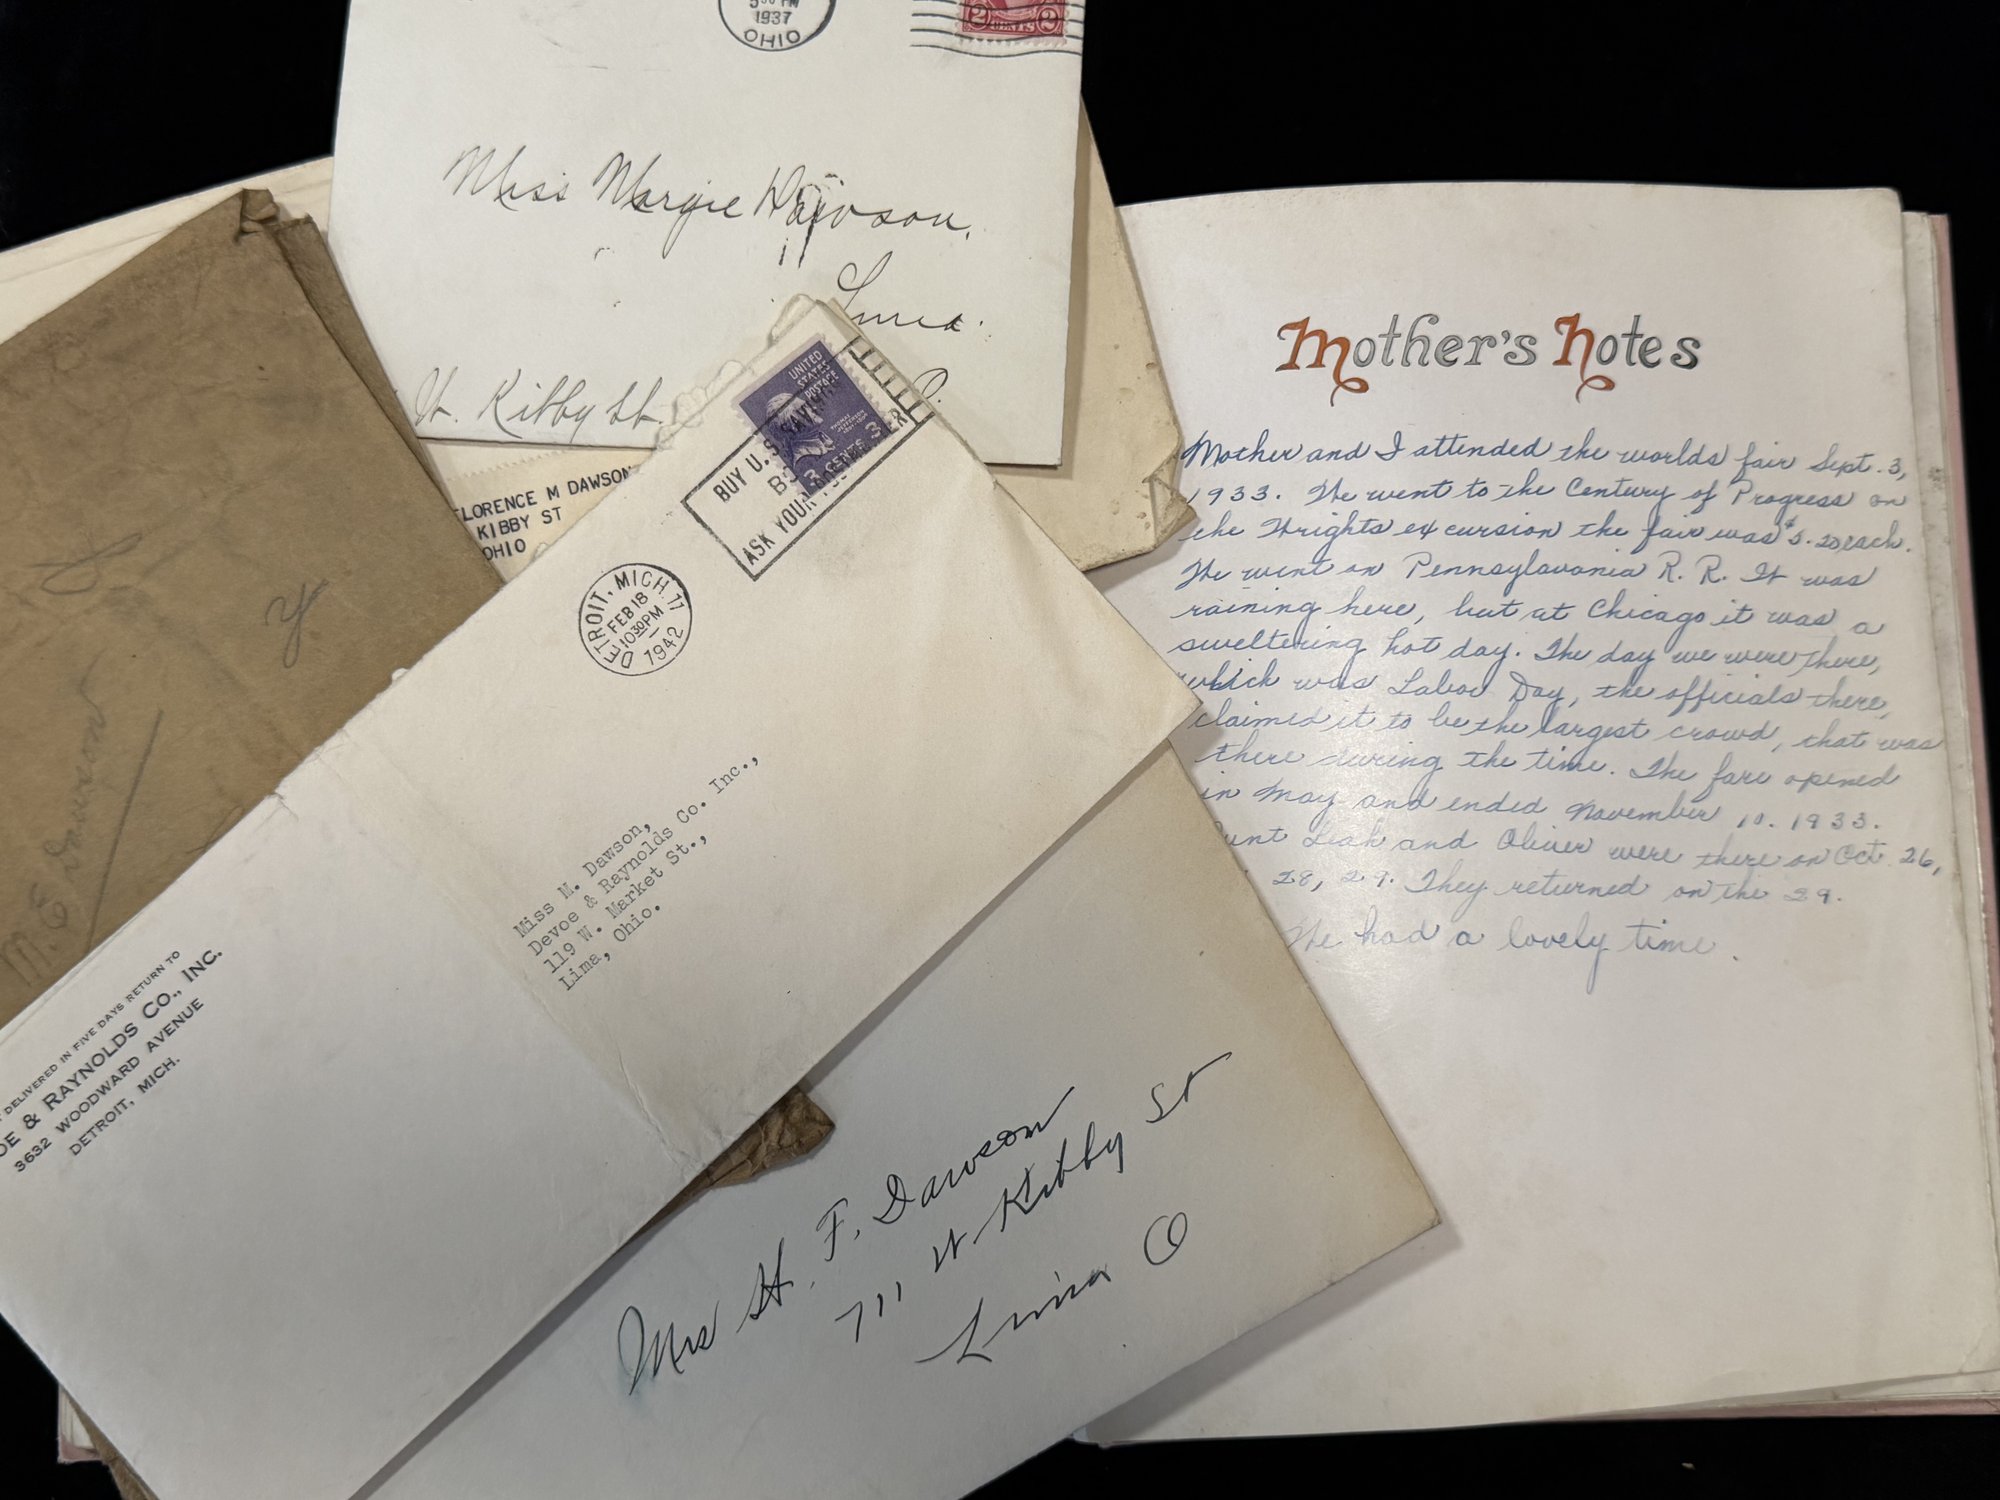 5 30 PM
1937
OHIO
2 CENTS 2
Miss Margie Dawson,
Lima.
W. Kibby St.
O.
FLORENCE M DAWSON
KIBBY ST
OHIO
UNITED
STATES
POSTAGE
THOMAS
JEFFERSON
3 CENTS 3
BUY U.S. SAVINGS
ASK YOUR
DETROIT, MICH. 17
FEB 18
10 30 PM
1942
Miss M. Dawson,
Devoe & Raynolds Co. Inc.,
119 W. Market St.,
Lima, Ohio.
DELIVERED IN FIVE DAYS RETURN TO
OE & RAYNOLDS CO., INC.
3632 WOODWARD AVENUE
DETROIT, MICH.
M. E. Dawson
Mrs H. F. Dawson
711 W Kibby St
Lima O
Mother's Notes
Mother and I attended the worlds fair Sept. 3,
1933. We went to the Century of Progress on
the Wrights excursion the fair was $5.20 each.
We went on Pennsylavania R. R. It was
raining here, but at Chicago it was a
sweltering hot day. The day we were there,
which was Labor Day, the officials there,
claimed it to be the largest crowd, that was
there during the time. The fare opened
in May and ended November 10. 1933.
unt Leah and Oliver were there on Oct. 26,
28, 29. They returned on the 29.
We had a lovely time.